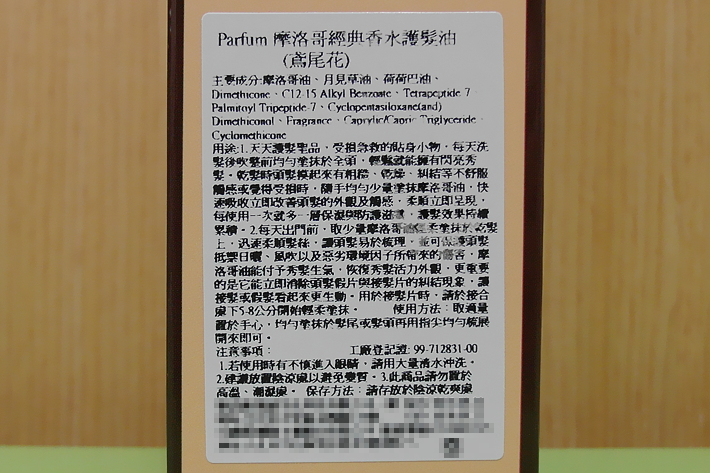 Parfum 摩洛哥經典香水護髮油
(鳶尾花)
主要成分:摩洛哥油、月見草油、荷荷巴油、
Dimethicone、C12-15 Alkyl Benzoate、Tetrapeptide-7、
Palmitoyl Tripeptide-7、Cyclopentasiloxane(and)
Dimethiconol、Fragrance、Caprylic/Capric Triglyceride、
Cyclomethicone
用途:1.天天護髮聖品，受損急救的貼身小物，每天洗
髮後吹髮前均勻塗抹於全頭，輕鬆就能擁有閃亮秀
髮。乾髮時頭髮摸起來有粗糙、乾燥、糾結等不舒服
觸感或覺得受損時，隨手均勻少量塗抹摩洛哥油，快
速吸收立即改善頭髮的外觀及觸感，柔順立即呈現，
每使用一次就多一層保濕與防護滋潤，護髮效果持續
累積。2.每天出門前，取少量摩洛哥油輕柔塗抹於乾髮
上，迅速柔順髮絲，讓頭髮易於梳理，並可保護頭髮
抵禦日曬、風吹以及惡劣環境因子所帶來的傷害，摩
洛哥油能付予秀髮生氣，恢復秀髮活力外觀，更重要
的是它能立即消除頭髮假片與接髮片的糾結現象，讓
接髮或假髮看起來更生動。用於接髮片時，請於接合
處下5-8公分開始輕柔塗抹。 使用方法：取適量
置於手心，均勻塗抹於髮尾或髮頭再用指尖均勻梳展
開來即可。
注意事項： 工廠登記證: 99-712831-00
1.若使用時有不慎進入眼睛，請用大量清水沖洗。
2.建議放置陰涼處以避免變質。3.此商品請勿置於
高溫、潮濕處。 保存方法：請存放於陰涼乾爽處